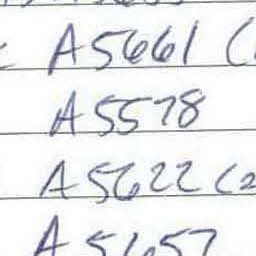 A5661 (
A5578
A5622 (2
A5657